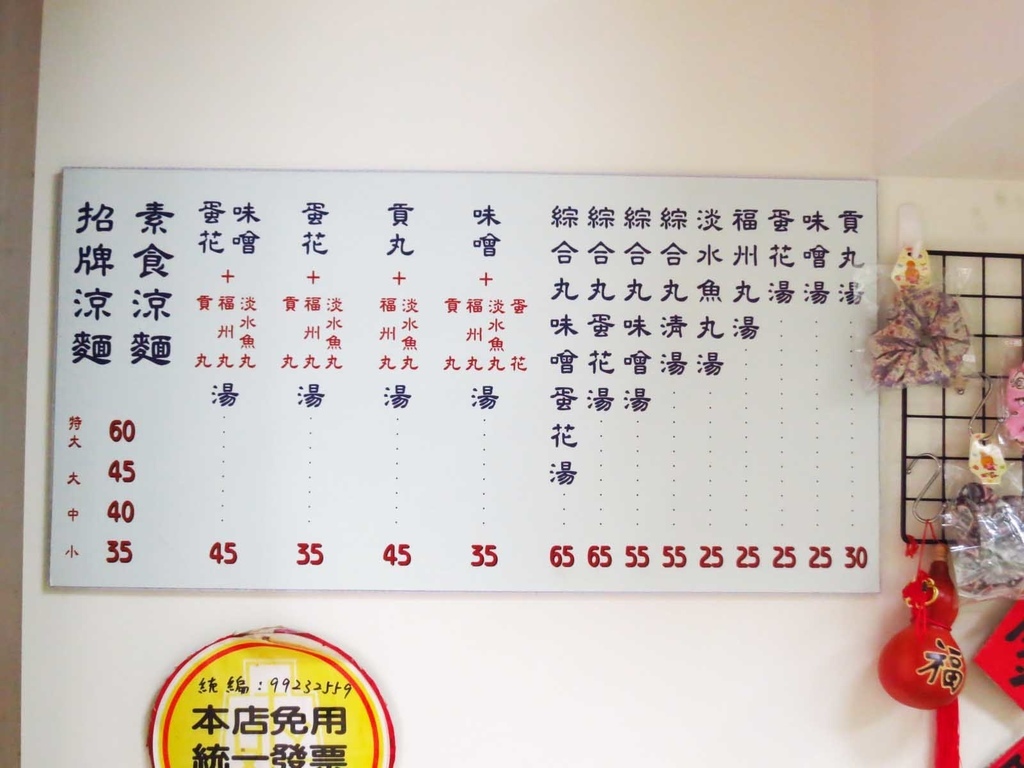 貢丸湯 30
味噌湯 25
蛋花湯 25
福州丸湯 25
淡水魚丸湯 25
綜合丸清湯 55
綜合丸味噌湯 55
綜合丸蛋花湯 65
綜合丸味噌蛋花湯 65
味噌
+
蛋花
淡水魚丸
福州丸
貢丸
湯
35
貢丸
+
淡水魚丸
福州丸
湯
45
蛋花
+
淡水魚丸
福州丸
貢丸
湯
35
味噌
蛋花
+
淡水魚丸
福州丸
貢丸
湯
45
素食涼麵
招牌涼麵
特大 60
大 45
中 40
小 35
統編:99232559
本店免用
統一發票
福